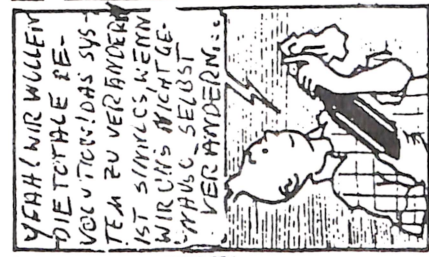 YEAH! WIR WOLLEN
DIE TOTALE RE-
VOLUTION! DAS SYS-
TEM ZU VERÄNDERN
IST SINNLOS, WENN
WIR UNS NICHT GE-
NAUSO SELBST
VERÄNDERN...